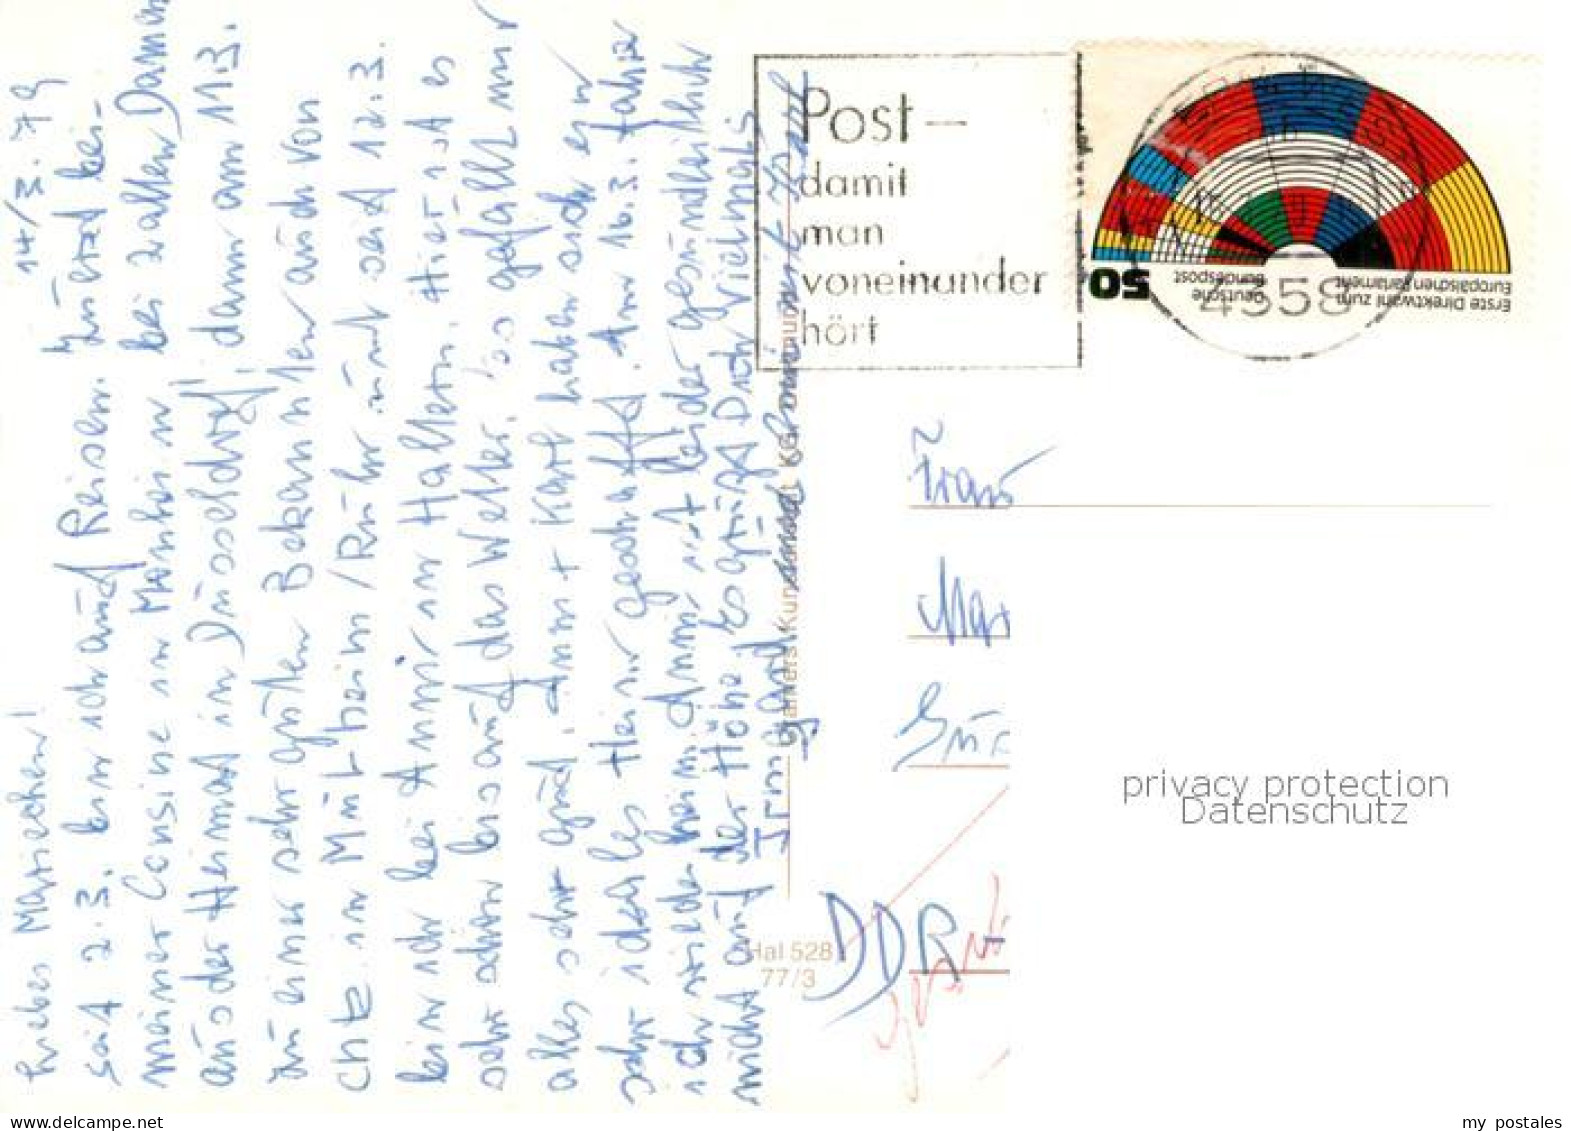 14/3.79
Liebes Mariechen!
seit 2.3. bin ich auf Reisen. Zuerst bei
meiner Cousine in Monheim bei zwei alten Damen
aus der Heimat in Düsseldorf, dann am 11.3.
zu einer sehr guten Bekannten auch von
Chtz in Mülheim/Ruhr und seit 12.3.
bin ich bei Anni in Haltern. Hier ist es
sehr schön bis auf das Wetter, es gefällt mir
alles sehr gut. Anni + Karl haben sich ein
sehr ideales Heim geschafft. Am 16.3. fahre
ich wieder heim. Anni ist leider gesundheitlich
nicht auf der Höhe. Es grüßt Dich vielmals
Irmgard
Post –
damit
man
voneinander
hört
4358
50
Deutsche
Bundespost
Erste Direktwahl zum
Europäischen Parlament
Frau
Mar
DDR –
Hal 528
77/3
privacy protection
Datenschutz
my postales